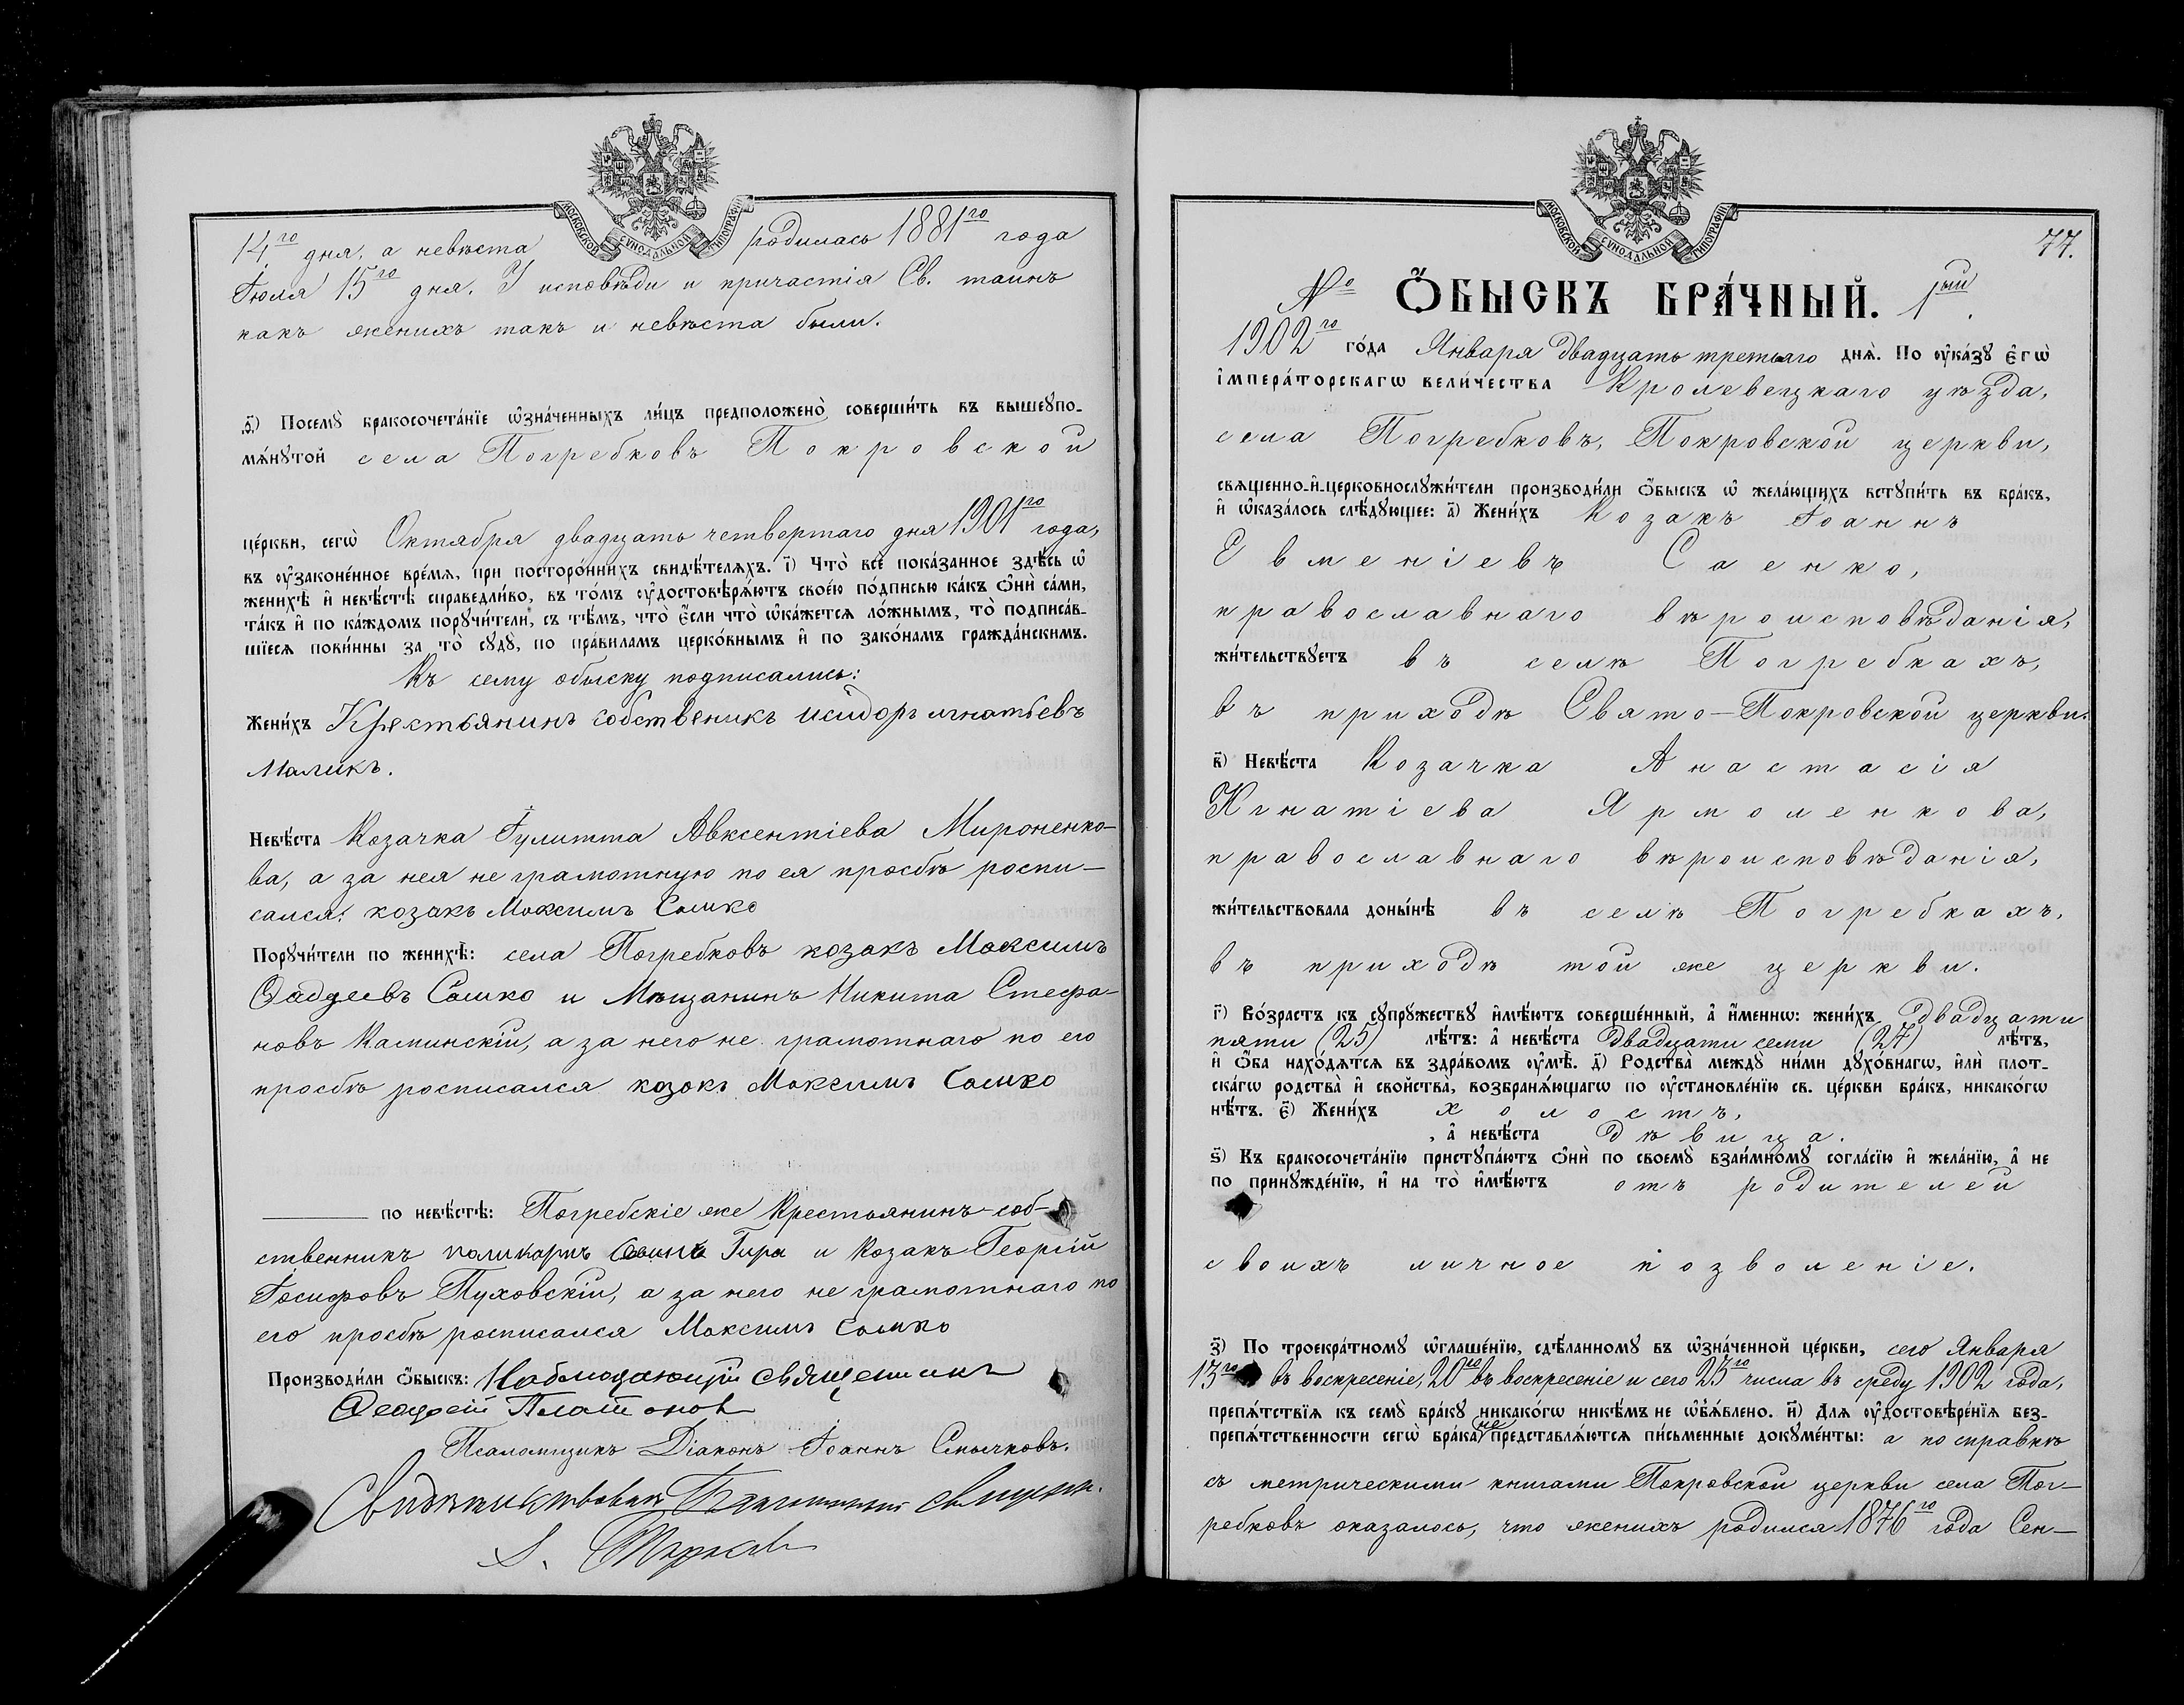 МОСКОВСКОЙ СУНОДАЛЬНОЙ ТИПОГРАФІИ
14.го дня, а невѣста родилась 1881го года
Іюля 15го дня. У исповѣди и причастія Св. таинъ
какъ женихъ такъ и невѣста были.
ѳ҃) Посемꙋ̀ бракосочета́нїе ѡ҆зна́ченныхъ ли́цъ предположено̀ соверши́ть въ вышеꙋпо-
мѧ́нꙋтой села Погребковъ Покровской
це́ркви, сегѡ̀ Октября двадцать четвертаго дня 1901го года,
въ ᲂу҆законе́нное вре́мѧ, при посторо́ннихъ свидѣ́телѧхъ. і҃) Что̀ всѐ пока́занное здѣ́сь ѡ҆
женихѣ̀ и҆ невѣ́стѣ справедли́во, въ то́мъ ᲂу҆достовѣрѧ́ютъ свое́ю по́дписью ка́къ ѻ҆нѝ са́ми,
та́къ и҆ по ка́ждомъ порꙋчи́тели, съ тѣ́мъ, что̀ є҆́сли что̀ ѡ҆ка́жетсѧ ло́жнымъ, то̀ подписа́в-
шїесѧ пови́нны за то̀ сꙋдꙋ̀, по пра́виламъ церко́внымъ и҆ по зако́намъ гражда́нскимъ.
Къ сему обыску подписались:
Жени́хъ Крестьянинъ собственикъ исидоръ игнатьевъ
Маликъ.
Невѣ́ста Козачка Іулитта Авксентіева Мироненко-
ва, а за нея не грамотную по ея просьбѣ роспи-
сался: козакъ Максимъ Сомко
Порꙋчи́тели по женихѣ̀: села Погребковъ козакъ Максимъ
Фадѣевъ Сомко и Мѣщанинъ Никита Стефа-
новъ Каминскій, а за него не грамотнаго по его
просьбѣ росписался козакъ Максимъ Сомко
по невѣ́стѣ: Погребскіе же Крестьянинъ-соб-
ственникъ поликарпъ Гира и Козакъ Георгій
Іосифовъ Пуховскій, а за него не грамотнаго по
его просьбѣ росписался Максимъ Сомко
Производи́ли ѻ҆́быскъ: Наблюдающій священникъ
Платонов
Псаломщикъ Діаконъ Іоаннъ Смычковъ.
МОСКОВСКОЙ СУНОДАЛЬНОЙ ТИПОГРАФІИ
77.
№ Ѻ҆БЫСКЪ БРА́ЧНЫЙ. 1ый.
1902го го́да Января двадцать третьяго днѧ̀. По ᲂу҆ка́зꙋ Є҆гѡ̀
І҆мпера́торскагѡ вели́чества Кролевецкаго уѣзда,
села Погребковъ, Покровской церкви,
свѧщенно-и҆-церковнослꙋжи́тели производи́ли ѻ҆́быскъ ѡ҆ жела́ющихъ встꙋпи́ть въ бра́къ,
и҆ ѡ҆каза́лось слѣ́дꙋющее: а҃) Жени́хъ Козакъ Іоаннъ
Евменіевъ Саенко,
православнаго вѣроисповѣданія,
жи́тельствꙋетъ въ селѣ Погребкахъ,
въ приходѣ Свято-Покровской церкви.
в҃) Невѣ́ста Козачка Анастасія
Игнатіева Ярмоленкова,
православнаго вѣроисповѣданія,
жи́тельствовала доны́нѣ въ селѣ Погребкахъ,
въ приходѣ той же церкви.
г҃) Во́зрастъ къ сꙋпрꙋ́жествꙋ и҆мѣ́ютъ соверше́нный, а҆ и҆́меннѡ: жени́хъ двадцати
пяти (25) лѣ́тъ: а҆ невѣ́ста двадцати семи (27) лѣ́тъ,
и҆ ѻ҆́ба нахо́дѧтсѧ въ здра́вомъ ᲂу҆мѣ̀. д҃) Родства̀ междꙋ̀ ни́ми дꙋхо́внагѡ, и҆лѝ плот-
ска́гѡ родства̀ и҆ сво́йства̀, возбранѧ́ющагѡ по ᲂу҆становле́нїю св. це́ркви бра́къ, никако́гѡ
нѣ́тъ. є҃) Жени́хъ холостъ,
, а҆ невѣ́ста дѣвица.
ѕ҃) Къ бракосочета́нїю пристꙋпа́ютъ ѻ҆нѝ по своемꙋ̀ взаи́мномꙋ согла́сїю и҆ жела́нїю, а҆ не
по принꙋжде́нїю, и҆ на то̀ и҆мѣ́ютъ отъ родителей
своихъ личное позволеніе.
з҃) По троекра́тномꙋ ѡ҆глаше́нїю, сдѣ́ланномꙋ въ ѡ҆зна́ченной це́ркви, сего Января
13го въ воскресеніе, 20го въ воскресеніе и сего 23го числа въ среду 1902 года,
препѧ́тствїѧ къ семꙋ̀ бра́кꙋ никако́гѡ никѣ́мъ не ѡ҆б̾ѧ́влено. и҃) Длѧ ᲂу҆достовѣре́нїѧ без-
препѧ́тственности сегѡ̀ бра́ка не представлѧ́ютсѧ пи́сьменные докꙋме́нты: а по справкѣ
съ метрическими книгами Покровской церкви села Пог-
ребковъ оказалось, что женихъ родился 1876го года Сен-